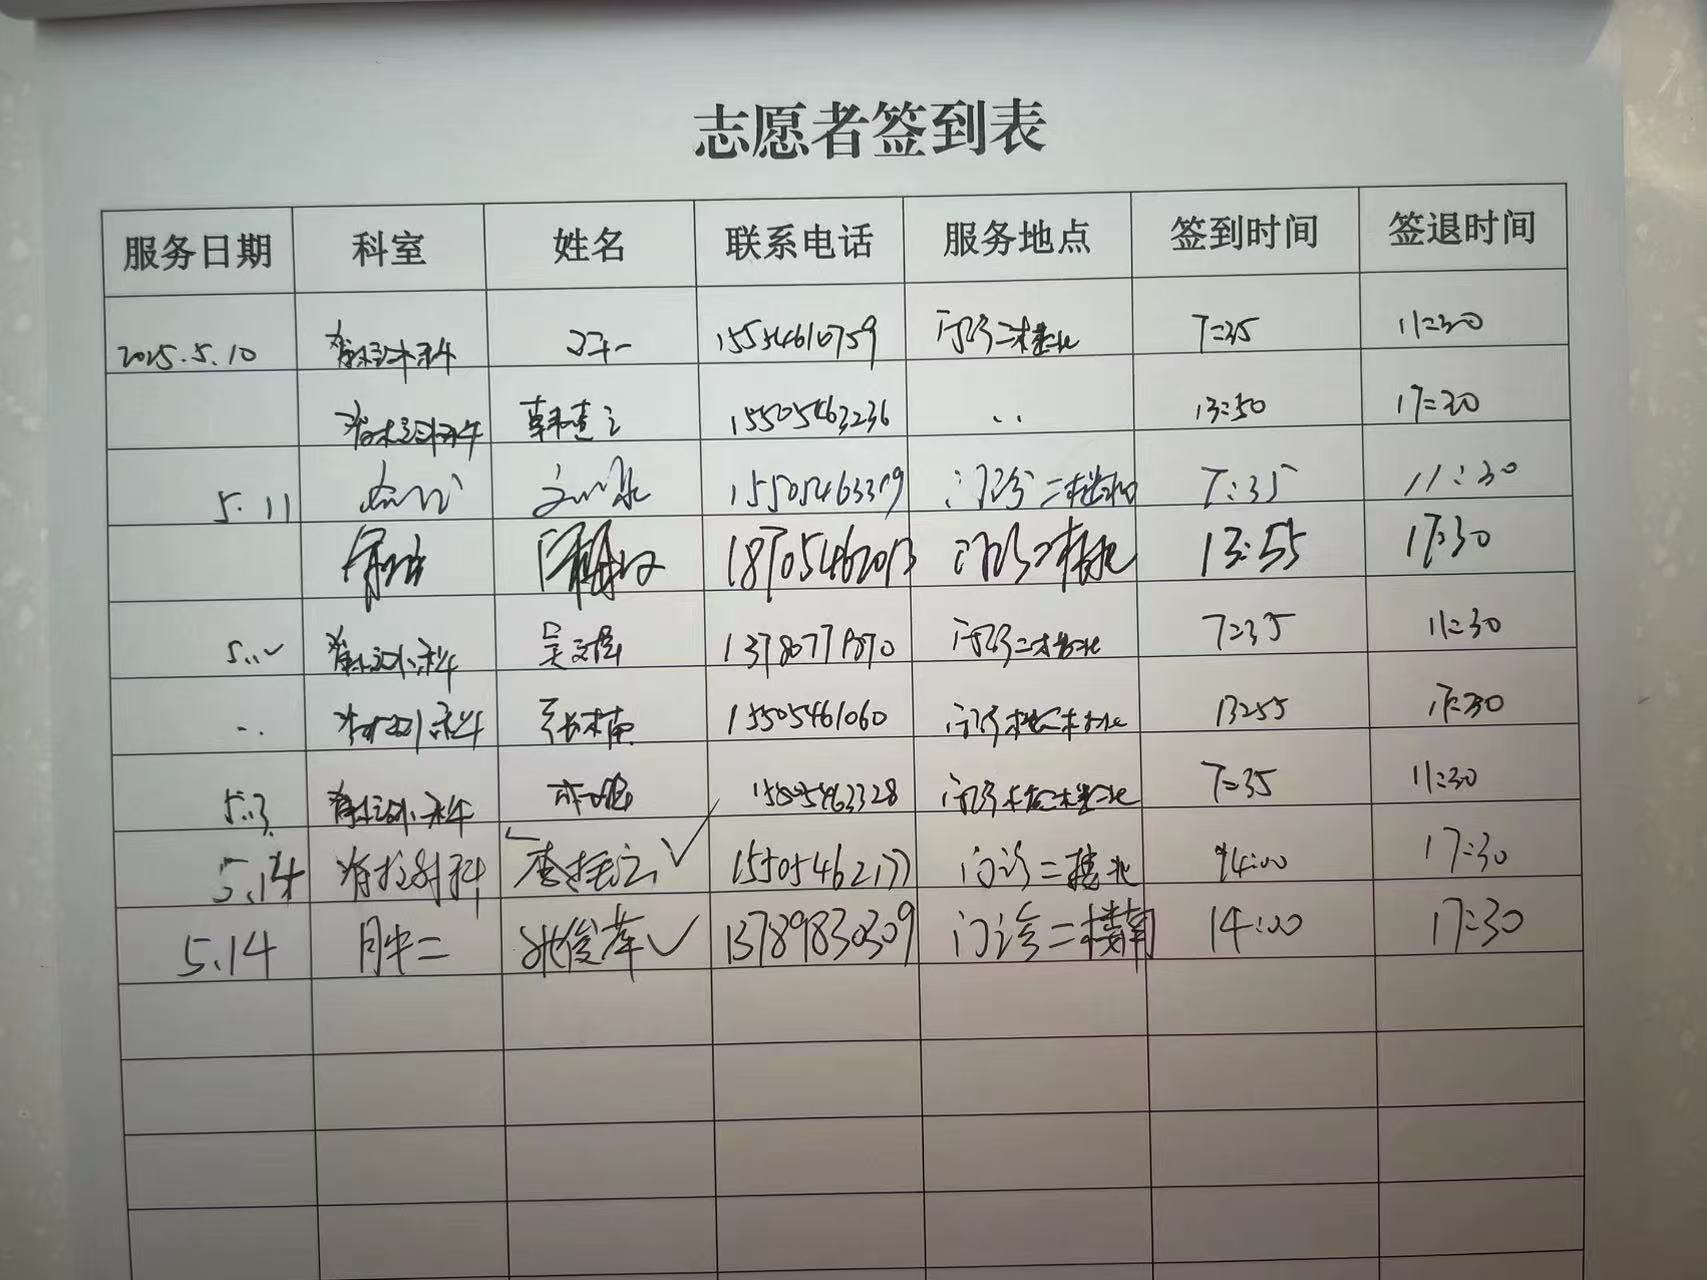 志愿者签到表
服务日期 科室 姓名 联系电话 服务地点 签到时间 签退时间
2025.5.10 脊柱外科 15554610759 门诊二楼北 7:35 11:30
脊柱外科 韩建立 15505463236 〃 13:50 17:30
5.11 15505463319 门诊二楼 7:35 11:30
脊柱 18705462013 门诊二楼北 13:55 17:30
5.12 脊柱外科 吴文 门诊二楼北 7:35 11:30
〃 脊柱外科 张楠 15505461060 门诊楼二楼北 13:55 17:30
5.13 脊柱外科 15505463328 门诊楼二楼北 7:35 11:30
5.14 脊柱外科 ✓ 门诊二楼北 14:00 17:30
5.14 姚俊 ✓ 13789830309 门诊二楼南 14:00 17:30